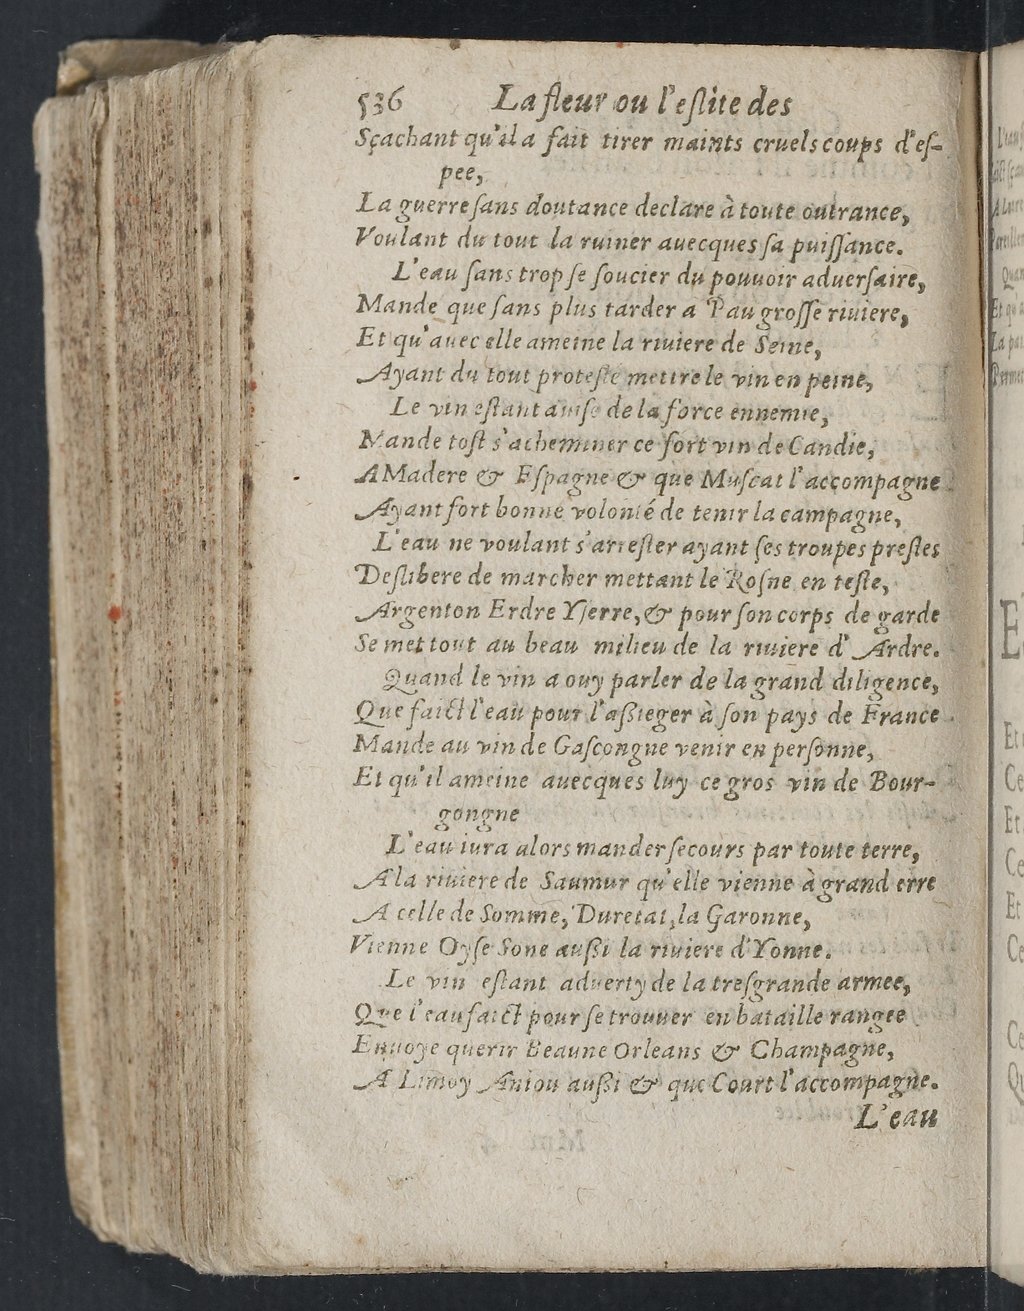 536 La fleur ou l'eſlite des
Sçachant qu'il a fait tirer maints cruels coups d'eſ-
pee,
La guerre ſans doutance declare à toute outrance,
Voulant du tout la ruiner auecques ſa puiſſance.
L'eau ſans trop ſe ſoucier du pouuoir aduerſaire,
Mande que ſans plus tarder a Pau groſſe riuiere,
Et qu'auec elle ameine la riuiere de Seine,
Ayant du tout proteſté mettre le vin en peine,
Le vin eſtant auiſé de la force ennemie,
Mande toſt s'acheminer ce fort vin de Candie,
A Madere & Eſpagne & que Muſcat l'accompagne
Ayant fort bonne volonté de tenir la campagne,
L'eau ne voulant s'arreſter ayant ſes troupes preſtes
Deſlibere de marcher mettant le Roſne en teſte,
Argenton Erdre Yſerre, & pour ſon corps de garde
Se met tout au beau milieu de la riuiere d'Ardre.
Quand le vin a ouy parler de la grand diligence,
Que faict l'eau pour l'aßieger à ſon pays de France
Mande au vin de Gaſcongne venir en perſonne,
Et qu'il ameine auecques luy ce gros vin de Bour-
gongne
L'eau iura alors mander ſecours par toute terre,
A la riuiere de Saumur qu'elle vienne à grand erre
A celle de Somme, Duretal, la Garonne,
Vienne Oyſe Sone außi la riuiere d'Yonne.
Le vin eſtant aduerty de la treſgrande armee,
Que l'eau faict pour ſe trouuer en bataille rangee
Enuoye querir Beaune Orleans & Champagne,
A Limoy Aniou außi & que Court l'accompagne.
L'eau